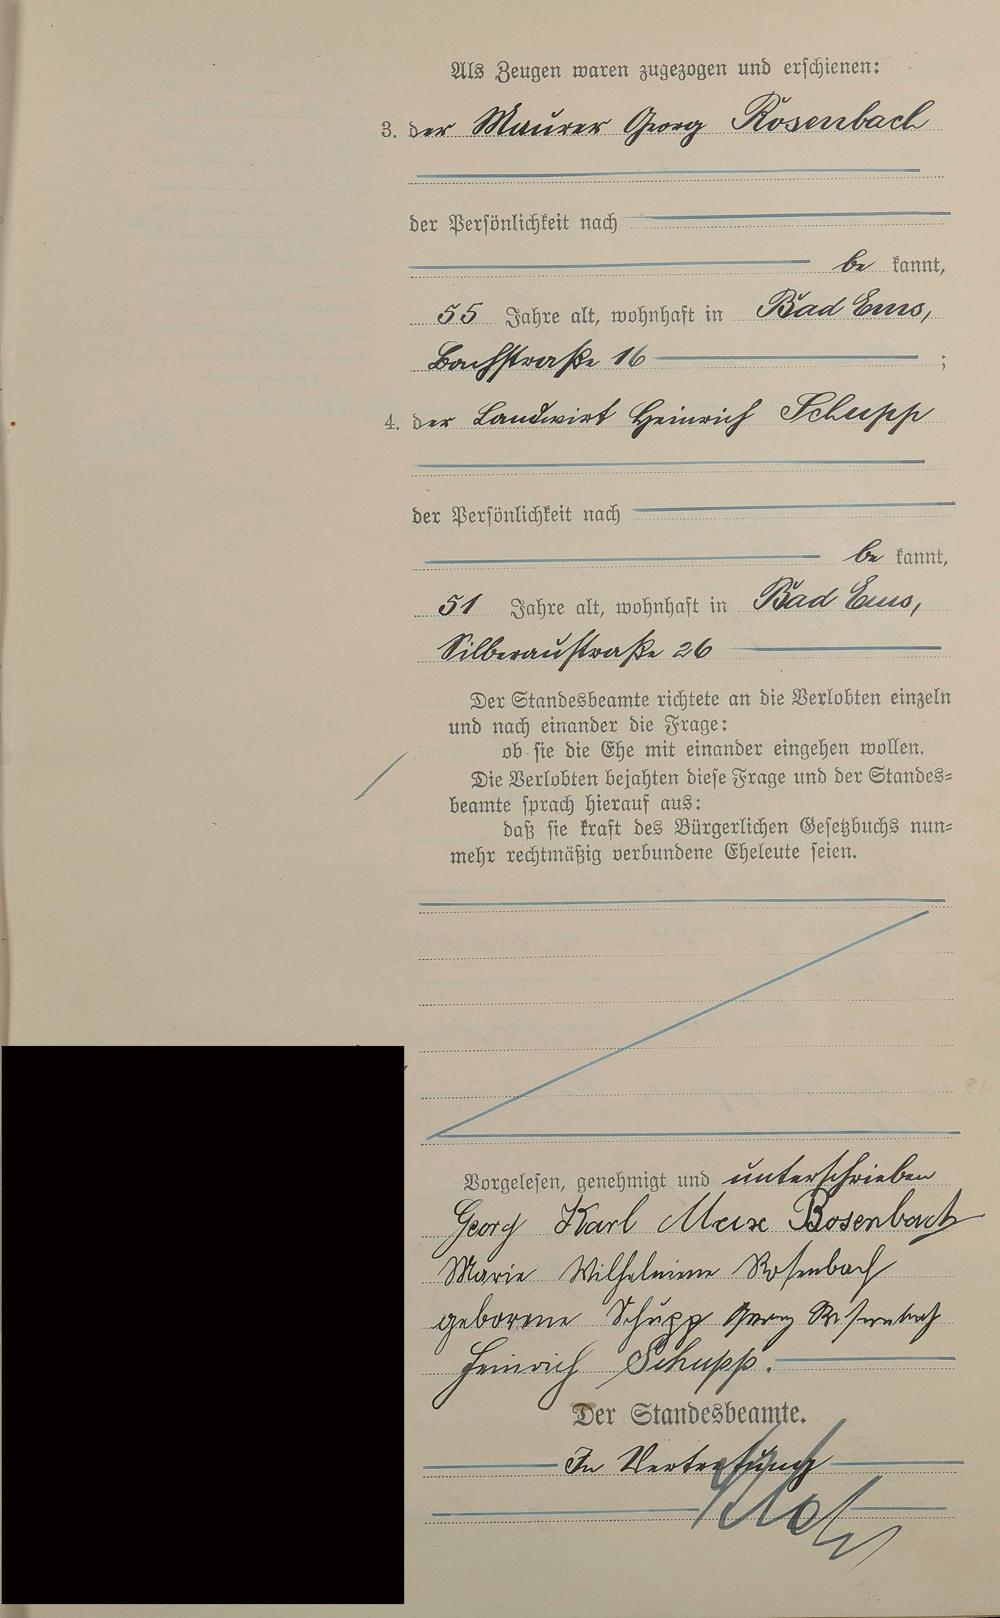 Als Zeugen waren zugezogen und erschienen:
3. der Maurer Georg Rosenbach
der Persönlichkeit nach
be kannt,
55 Jahre alt, wohnhaft in Bad Ems,
Bachstraße 16 ;
4. der Landwirt Heinrich Schupp
der Persönlichkeit nach
be kannt,
51 Jahre alt, wohnhaft in Bad Ems,
Silberaustraße 26
Der Standesbeamte richtete an die Verlobten einzeln
und nach einander die Frage:
ob sie die Ehe mit einander eingehen wollen.
Die Verlobten bejahten diese Frage und der Standes=
beamte sprach hierauf aus:
daß sie kraft des Bürgerlichen Gesetzbuchs nun=
mehr rechtmäßig verbundene Eheleute seien.
Vorgelesen, genehmigt und unterschrieben
Georg Karl Max Rosenbach
Marie Wilhelmine Rosenbach
geborene Schupp Georg Rosenbach
Heinrich Schupp.
Der Standesbeamte.
In Vertretung